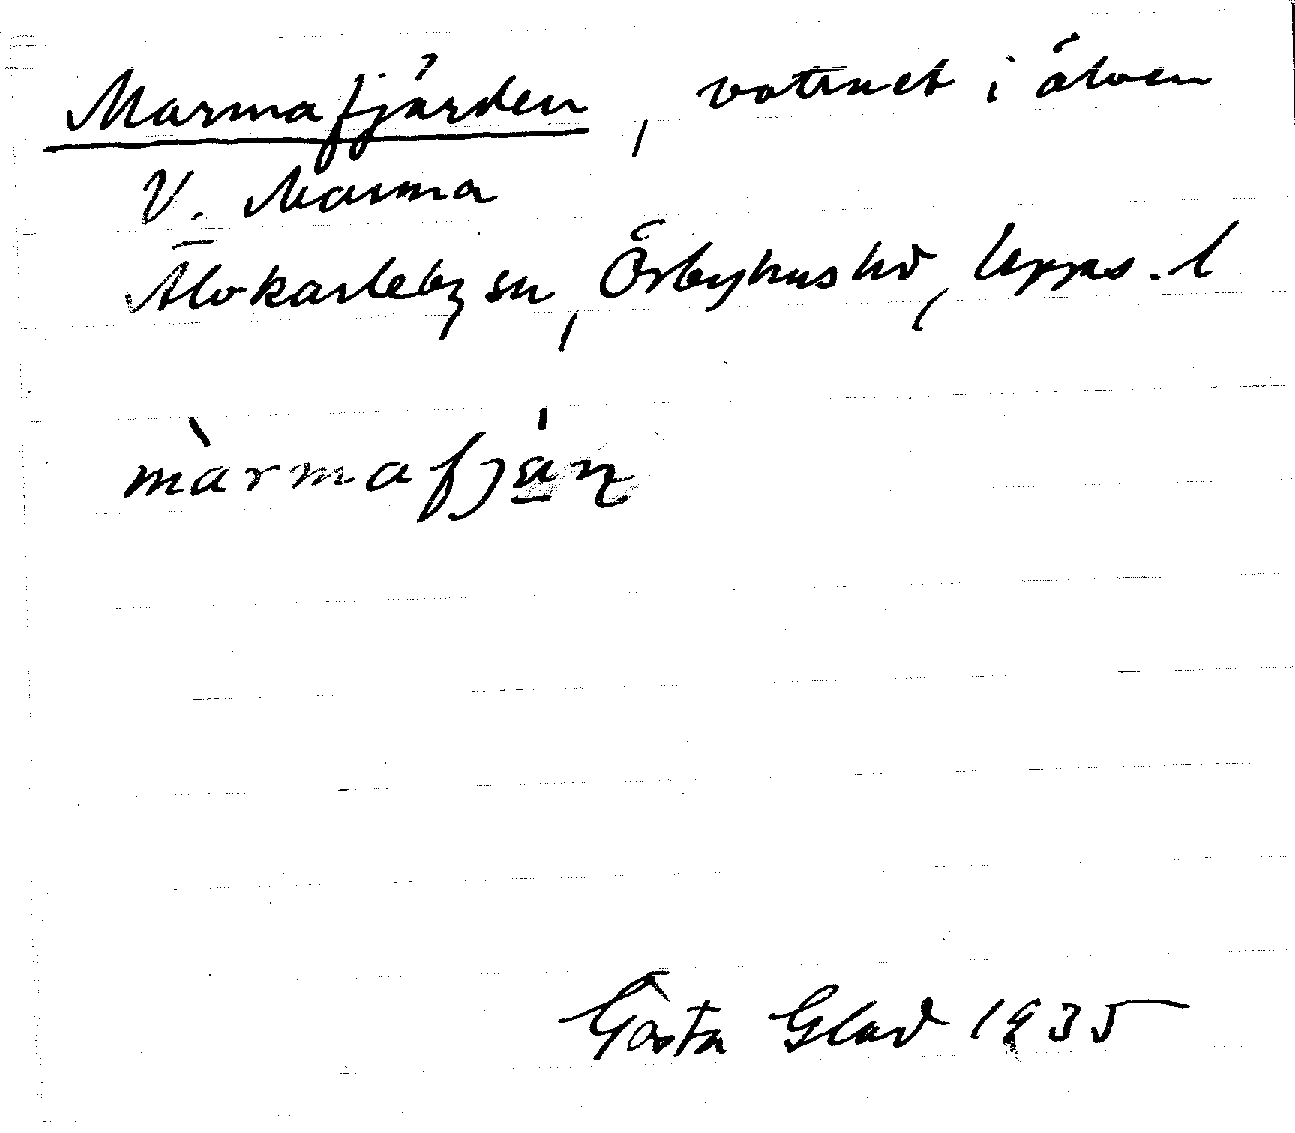 Marmafjärden, vattnet i älven
V. Marma
Älvkarleby sn, Örbyhus hd, Upps. l
màrmafjàɳ
Gösta Glad 1935